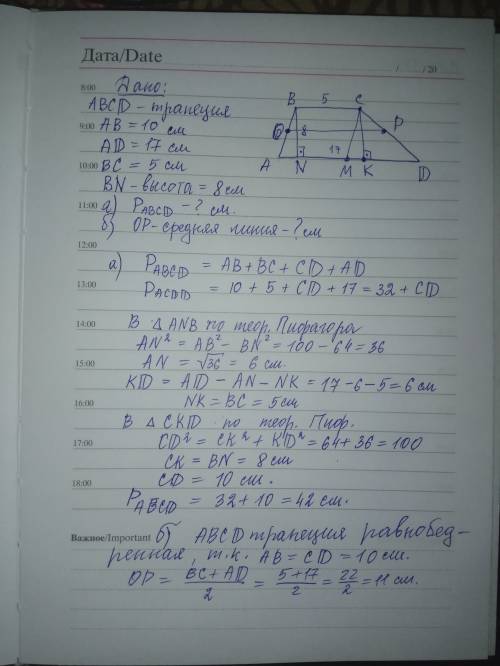 Дата/Date
/ /20
8:00 Дано:
ABCD - трапеция
9:00 AB = 10 см
AD = 17 см
10:00 BC = 5 см
BN - высота = 8 см
11:00 а) PABCD - ? см.
б) OP - средняя линия - ? см
B 5 C
O 8 P
A N 17 M K D
12:00
а) PABCD = AB + BC + CD + AD
13:00 PACDD = 10 + 5 + CD + 17 = 32 + CD
14:00 В △ ANB по теор. Пифагора
AN² = AB² - BN² = 100 - 64 = 36
15:00 AN = √36 = 6 см.
KD = AD - AN - NK = 17 - 6 - 5 = 6 см
16:00 NK = BC = 5 см
В △ CKD по теор. Пиф.
17:00 CD² = CK² + KD² = 64 + 36 = 100
CK = BN = 8 см
18:00 CD = 10 см.
PABCD = 32 + 10 = 42 см.
Важное/Important б) ABCD трапеция равнобед-
ренная, т.к. AB = CD = 10 см.
OP = BC + AD / 2 = 5 + 17 / 2 = 22 / 2 = 11 см.